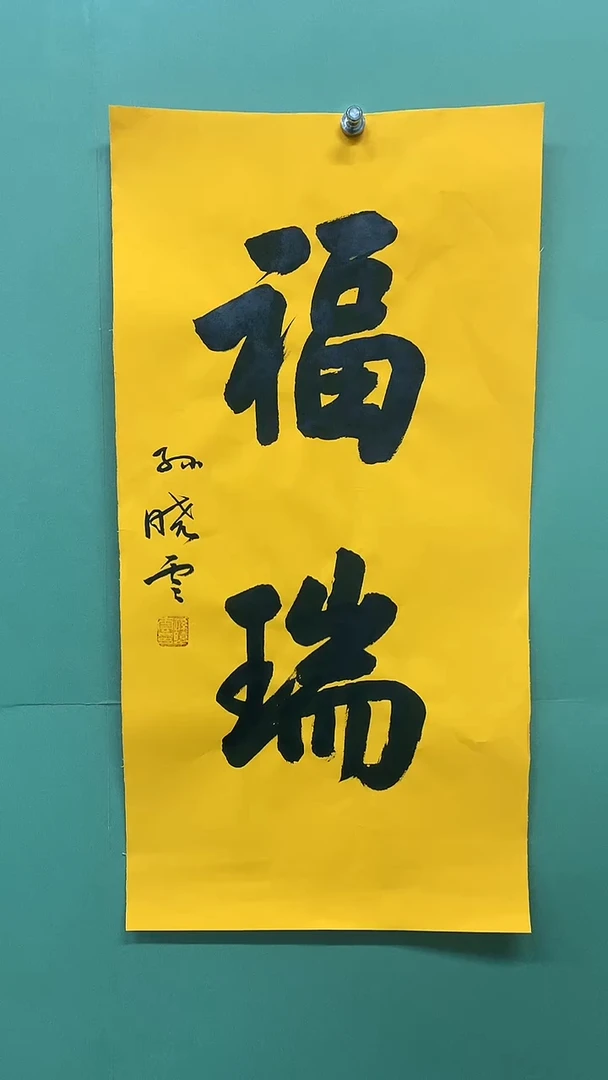 福瑞
孙晓云